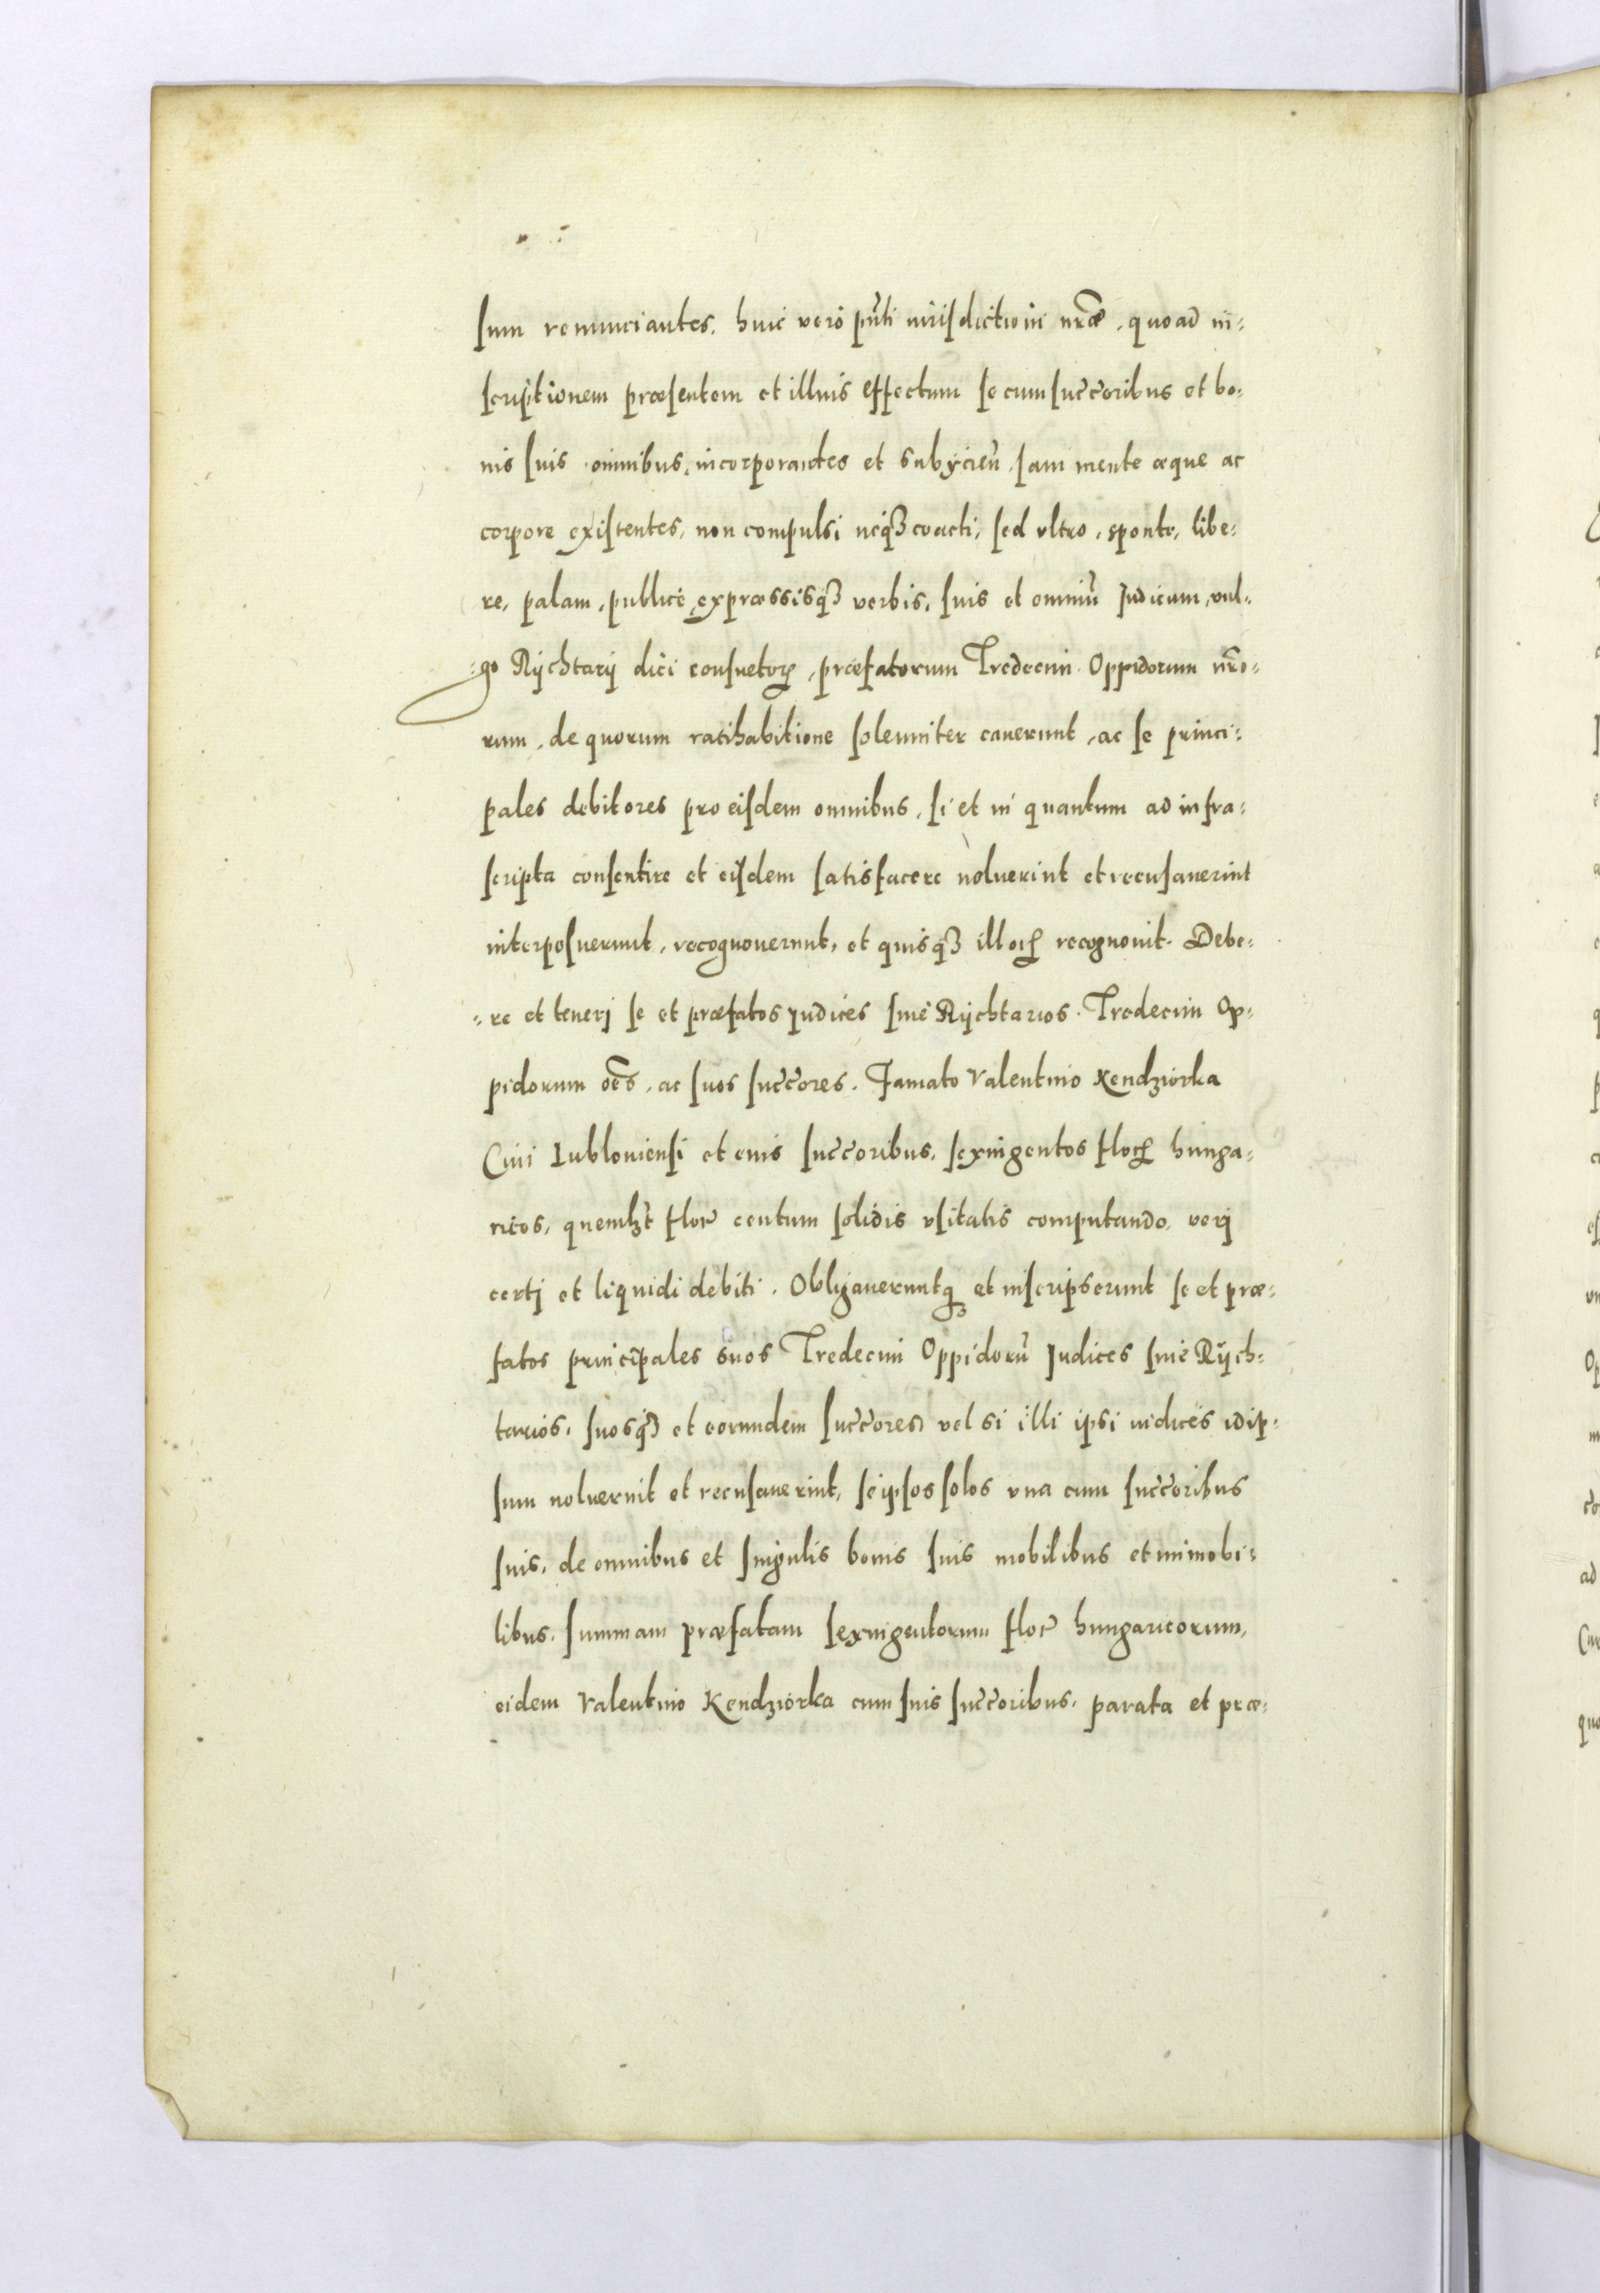 sum renunciantes, huic vero pñti iurisdictioni nr̃æ, quoad in-
scriptionem præsentem et illius effectum se cum succoribus et bo-
nis suis omnibus, incorporantes et subÿcieñ, sani mente æque ac
corpore existentes, non compulsi neqȝ coacti, sed vltro, sponte, libe-
re, palam, publice, expræssisqȝ verbis, suis et omniũ Judicum, vul-
go Rÿchtarÿ dici consuetoꝝ, præfatorum Tredecim Oppidorum nr̃o-
rum, de quorum ratihabitione solemniter cauerunt, ac se princi-
pales debitores pro eisdem omnibus, si et in quantum ad infra-
scripta consentire et eisdem satisfacere noluerint et recusauerint
interposuerunt, recognouerunt, et quisqȝ illoꝝ recognouit. Debe-
re et tenerj se et præfatos judices siue Rÿchtarios Tredecim Op-
pidorum oẽs, ac suos succores. Famato Valentino Kendziorka
Ciui Lubloniensi et eius succoribus, sexingentos floꝝ hunga-
ricos, quemlȝt flor centum solidis vsitatis computando, verj
certj et liquidi debiti. Obligaueruntqȝ et inscripserunt se et præ-
fatos principales suos Tredecim Oppidorũ Judices siue Rÿch-
tarios, suosqȝ et eorundem succores, vel si illi ipsi iudices idip-
sum noluerint et recusauerint, seipsos solos vna cum succoribus
suis, de omnibus et singulis bonis suis mobilibus et immobi-
libus, summam præfatam sexingentorum flor hungaricorum,
eidem Valentino Kendziorka cum suis succoribus, parata et præ-